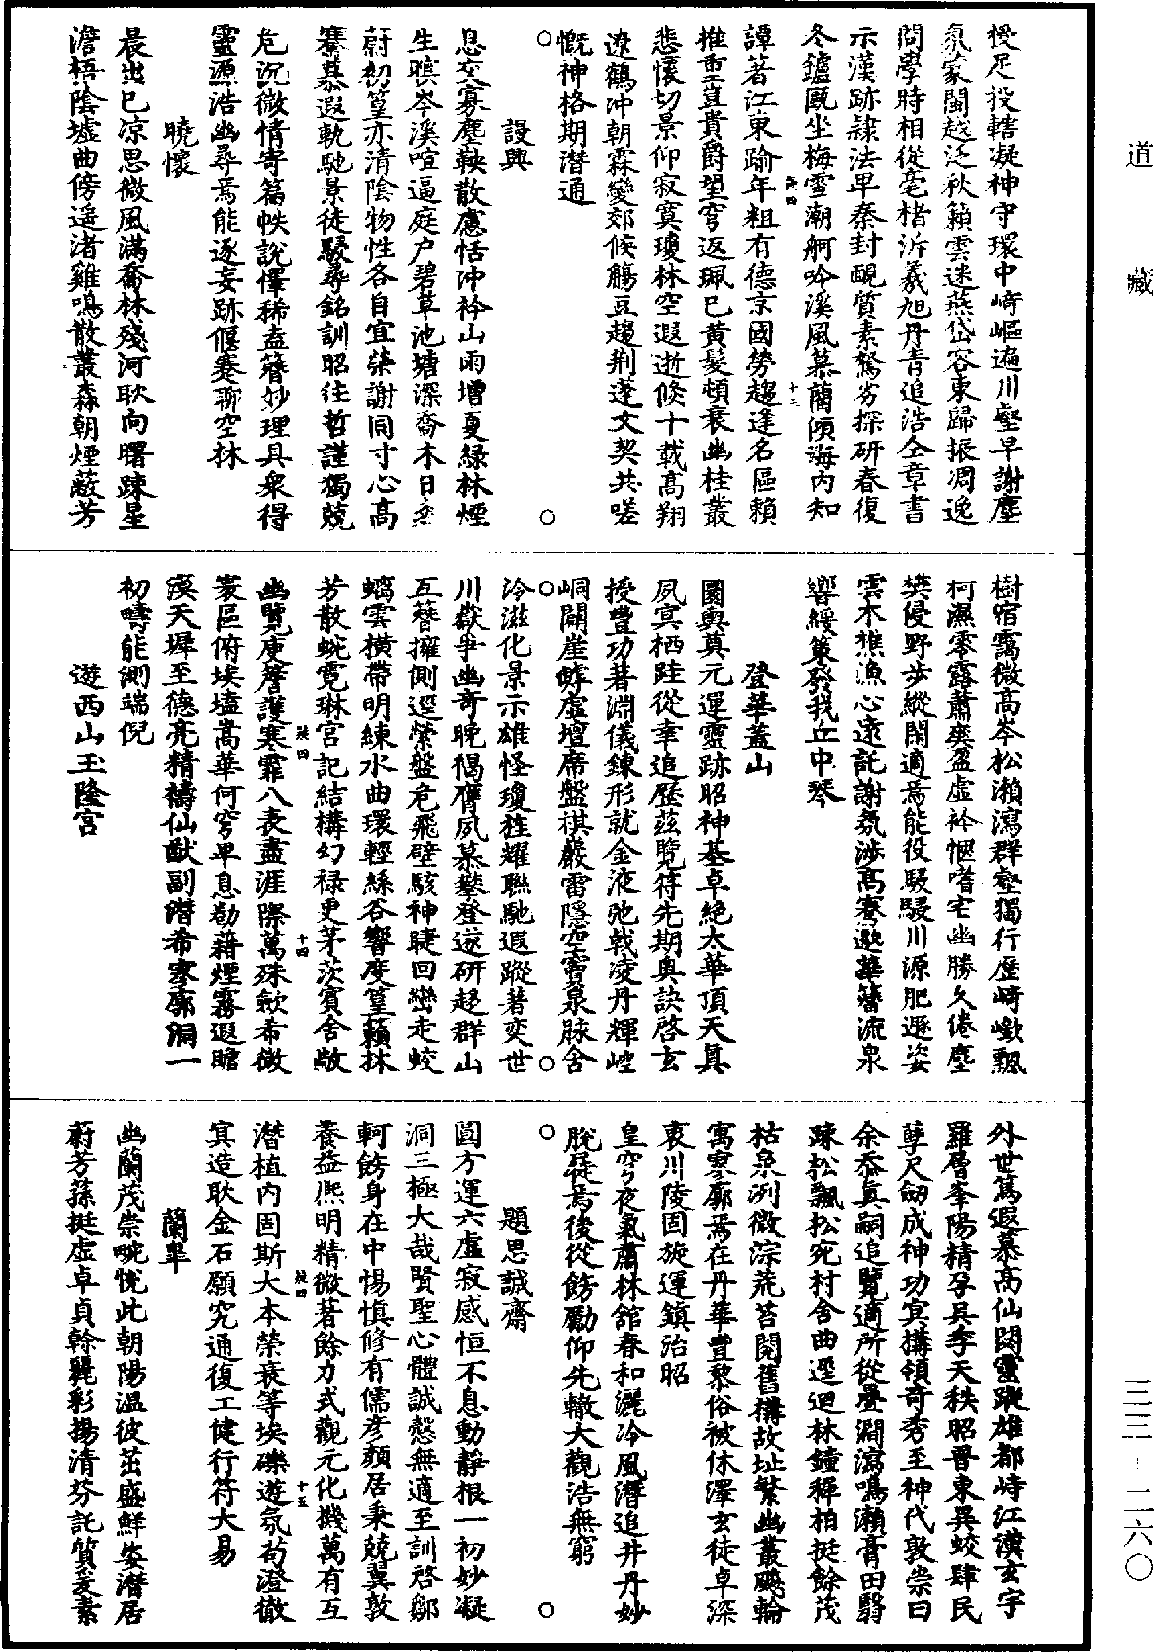 道藏
授足投轄凝神守環中崎嶇遍川壑早謝塵
氛蒙閩越泛秋籟雲迷燕岱容東歸振凋逸
問學時相從毫楮泝羲旭丹青追浩仝章書
示漢跡隷法早秦封醜質素駑劣探研春復
冬鑪甌坐梅雪潮舸吟溪風慕藺傾海內知
譚著江東踰年粗有德京國勞趨逢名區賴
推重豈貴爵望穹返珮已黃髮頓衰幽桂叢
悲懷切景仰寂寞瓊林空遐逝倐十載高翔
遼鶴沖朝霖變郊候觴豆趨荆蓬文契共嗟
慨神格期潛通
設興
息交寡塵鞅散慮恬沖衿山雨增夏綠林煙
生暝岑溪喧逼庭户碧草池塘深喬木日
蔚初篁亦清陰物性各自宜榮謝同寸心高
騫慕遐軌馳景徒駸尋銘訓昭往哲謹獨兢
危沉微情寄篇帙說懌稀盍簪妙理具衆得
靈源浩幽尋焉能逐妄跡偃蹇聊空林
曉懷
晨出已涼思微風滿喬林殘河耿向曙踈星
澹梧陰墟曲傍遥渚雞鳴散叢森朝煙蔽芳
樹宿靄微高岑松瀨瀉群壑獨行歷崎嶔飄
柯濕零露蕭爽盈虛衿愜嗜宅幽勝久倦塵
樊侵野步縱閑適焉能役駸駸川源肥遯姿
雲木樵漁心遠託謝氛涉高騫邈華簪流泉
響緩策發我丘中琴
登華蓋山
圜輿奠元運靈跡昭神基卓絕太華頂天真
夙冥栖跬從幸追歷兹覽符先期奧訣啓玄
授豐功著淵儀錬形就金液弛戟凌丹輝崆
峒闢崖罅虛壇席盤棋巖雷隱空竇泉脉舍
泠滋化景示雄怪瓊旌耀聯馳遐蹤著奕世
川嶽爭幽奇晚褐膺夙慕攀登遂研趨群山
互簪擁側逕縈盤危飛壁駭神睫回巒走蛟
螭雲橫帶明練水曲環輕絲谷響度篁籟林
芳散蜿霓琳宮記結構幻禄更茅茨賓舍敞
幽覽庚詹護寒霏八表盡涯際萬殊歛希微
寰區俯埃壒嵩華何穹卑息勤藉煙霧遐瞻
漠天墀至德亮精禱仙猷副潛希寥廓涸一
初疇能測端倪
遊西山玉隆宮
外世篤遐慕高仙閟靈蹤雄都峙江漢玄宇
羅層峯陽精孕吳李天秩昭晋東異蛟肆民
孽尺劒成神功冥搆領奇秀至神代敦崇曰
余忝真嗣追覽適所從疊澗瀉鳴瀨膏田翳
踈松飄松宛村舍曲逕迴林鐘稺柏挺餘茂
枯泉洌微淙荒苔閱舊搆故址繁幽叢飈輪
寓寥廓焉在丹華豊黎俗被休澤玄徒卓深
衷川陵固旋運鎮治昭
皇穹夜氣肅林舘春和灑冷風潛追井丹妙
脫屣焉後從飭勵仰先轍大觀浩無窮
題思誠齋
圓方運六虛寂感恒不息動靜根一初妙凝
洞三極大哉賢聖心體誠慤無適至訓啓鄒
軻飭身在中惕慎修有儒彦顏居秉兢翼敦
養益熈明精微著餘力式觀元化機萬有互
潛植內固斯大本榮衰等埃礫遊氛苟澄徹
寘造耿金石願究通復工健行符大易
蘭軰
幽蘭茂崇畹恱此朝陽溫彼茁盛鮮姿潛居
蔚芳蓀挺虛卓貞榦麗彩揚清芬託質爰素
三三-二六〇